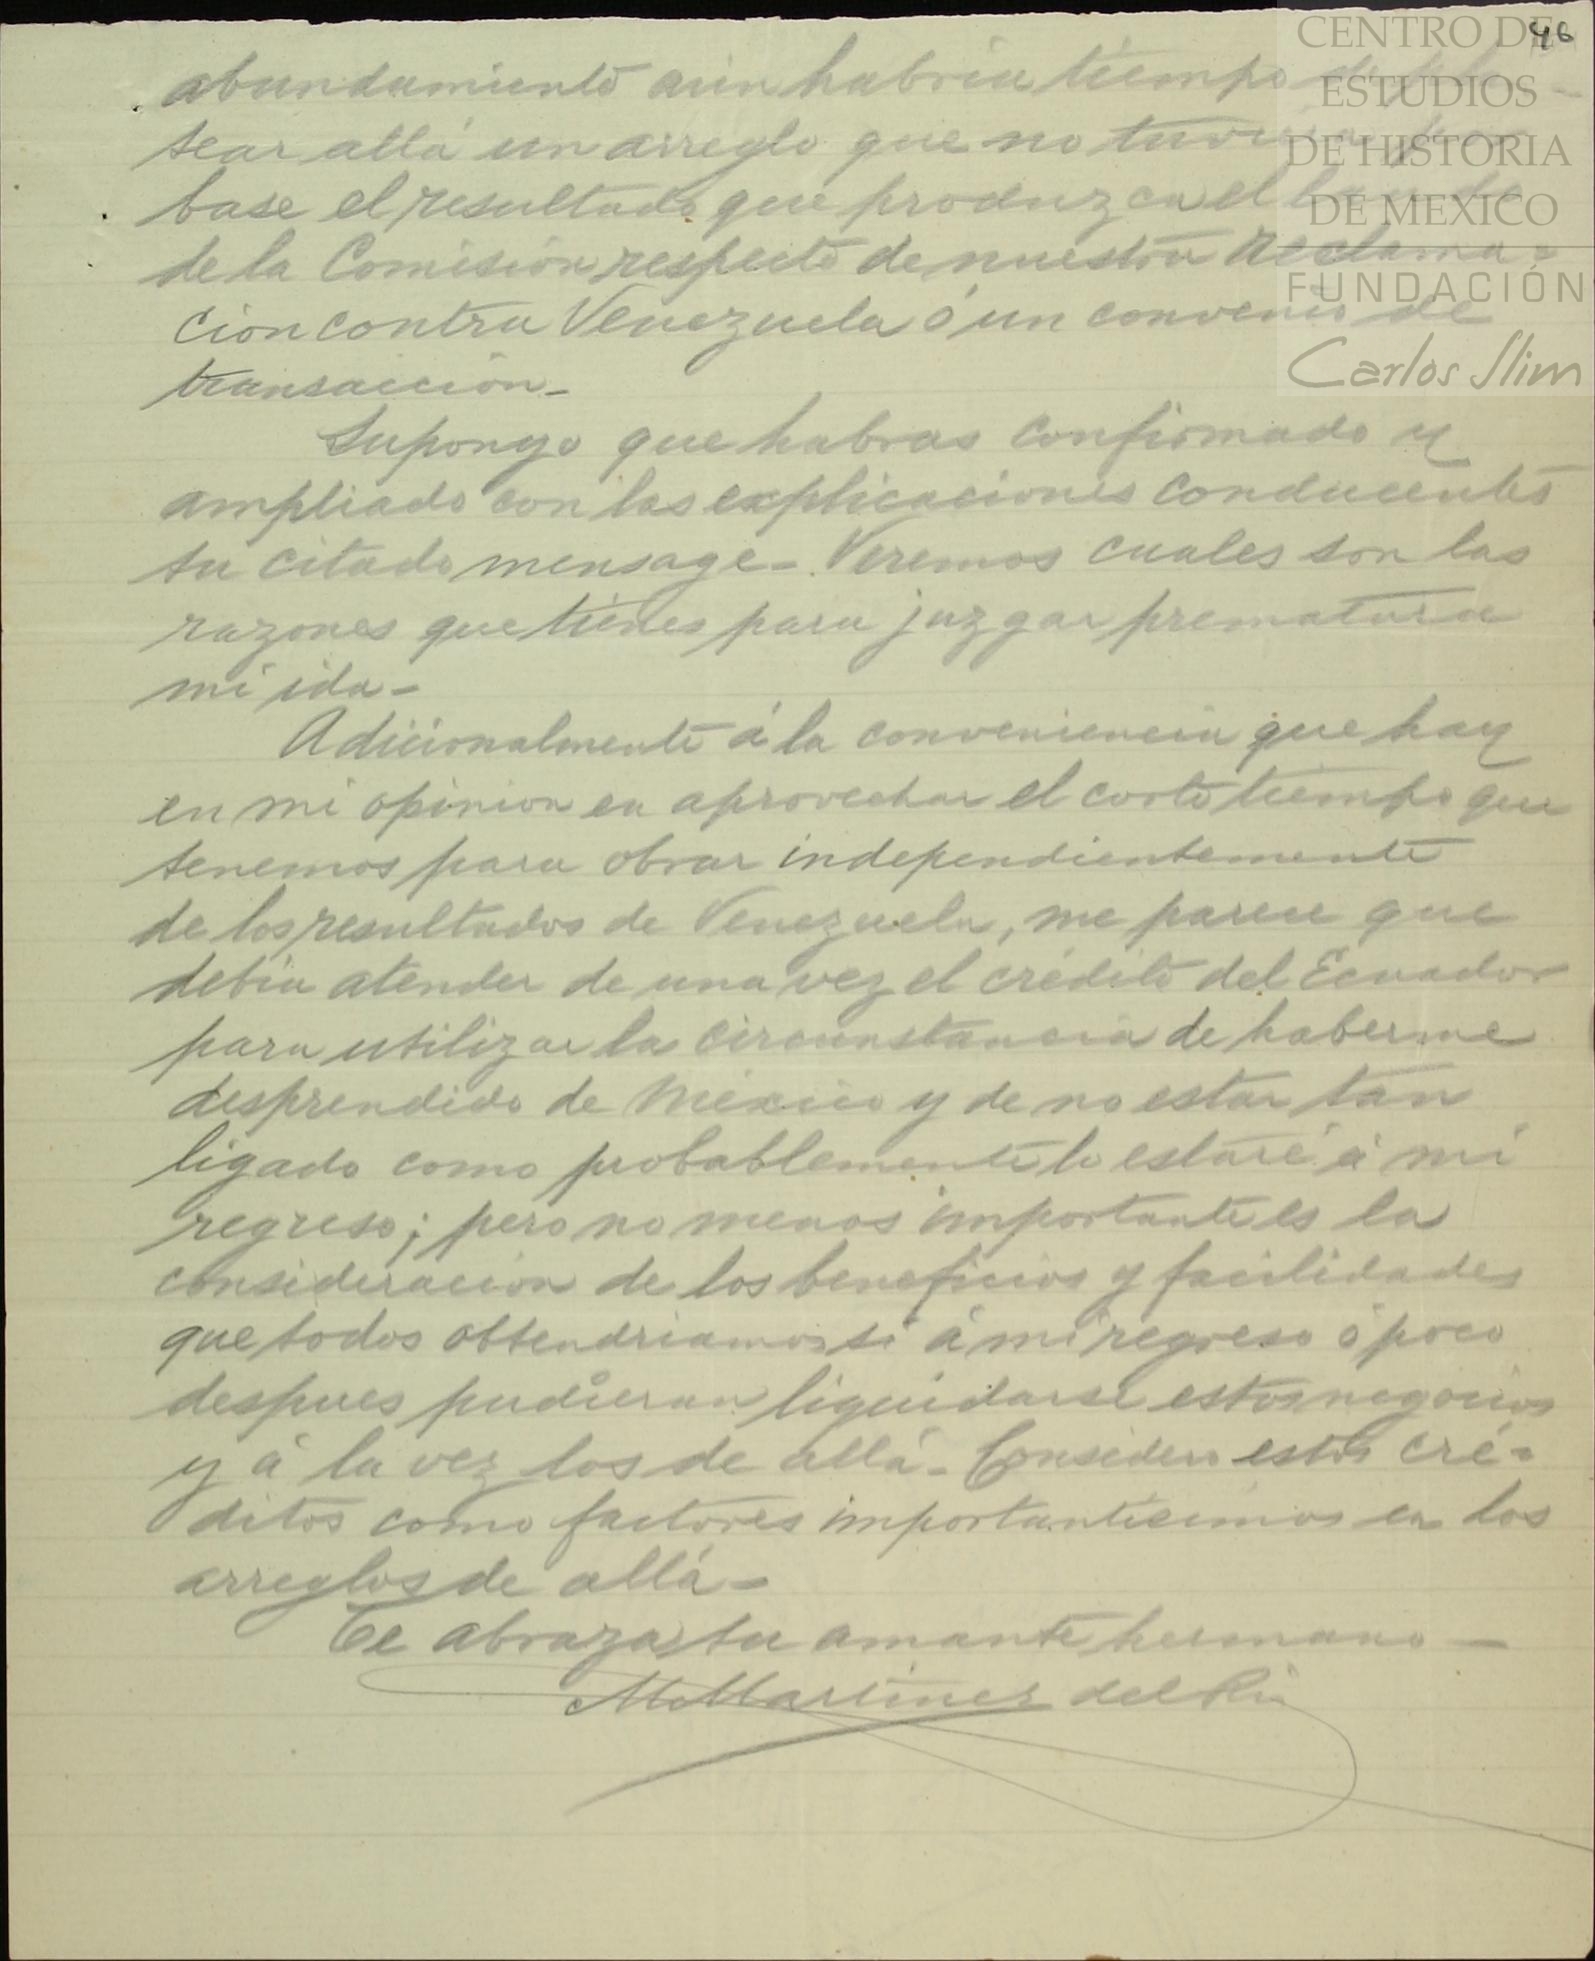 46
CENTRO DE
ESTUDIOS
DE HISTORIA
DE MEXICO
FUNDACIÓN
Carlos Slim
abundamiento aun habria tiempo de plan-
tear allá un arreglo que no tuviera por
base el resultado que produzca el laudo
de la Comision respecto de nuestra reclama-
cion contra Venezuela ó un convenio de
transaccion_
Supongo que habras confirmado y
ampliado con las explicaciones conducentes
tu citado mensage_ Veremos cuales son las
razones que tienes para juzgar prematura
mi ida_
Adicionalmente á la conveniencia que hay
en mi opinion en aprovechar el corto tiempo que
tenemos para obrar independientemente
de los resultados de Venezuela, me parece que
debia atender de una vez el crédito del Ecuador
para utilizar la circunstancia de haberme
desprendido de México y de no estar tan
ligado como probablemente lo estaré á mi
regreso; pero no menos importante es la
consideracion de los beneficios y facilidades
que todos obtendriamos si á mi regreso ó poco
despues pudieran liquidarse estos negocios
y á la vez los de allá_ Considero estos cré-
ditos como factores importanticimos en los
arreglos de allá_
Te abraza tu amante hermano_
M Martinez del Rio